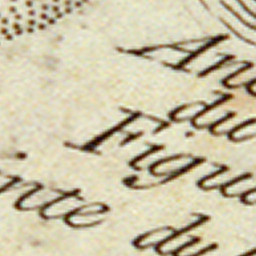 Ans
du
Figu
inte du